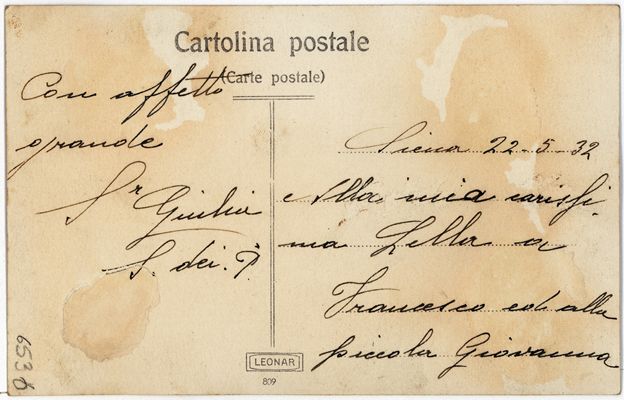 Cartolina postale
(Carte postale)
Con affetto
grande
Sr Giulia
S. dei. P.
Siena 22-5-32
Alla mia carissi-
ma Lella a
Francesco ed alla
piccola Giovanna
LEONAR
809
6538